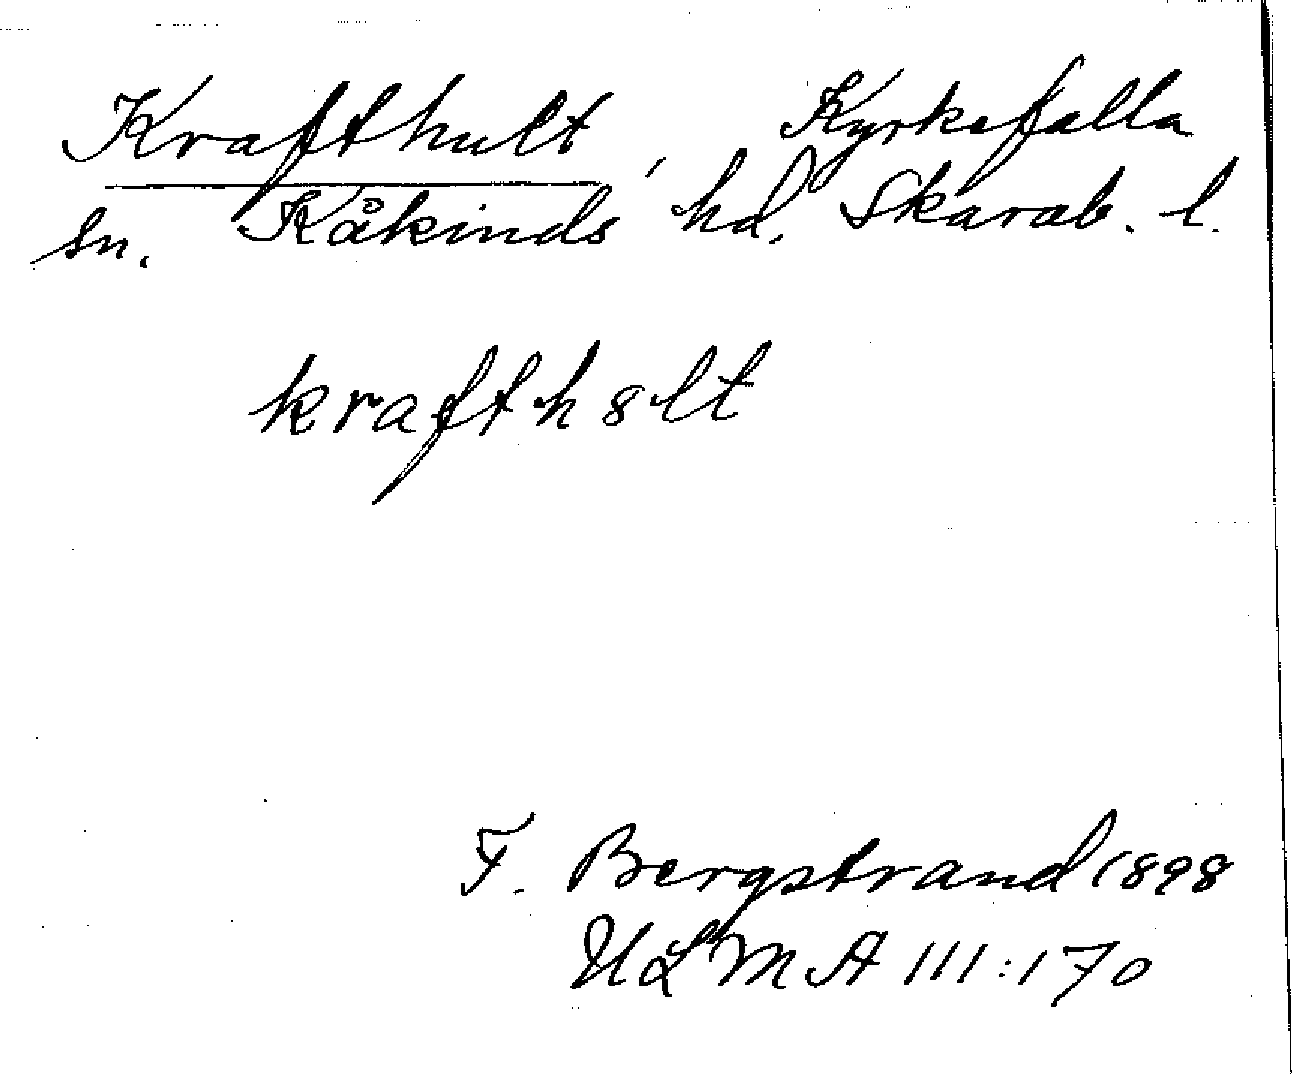 Krafthult, Kyrkefalla
sn. Kåkinds hd. Skarab. l.
krafth8lt
F. Bergstrand 1898
ULMA 111:170